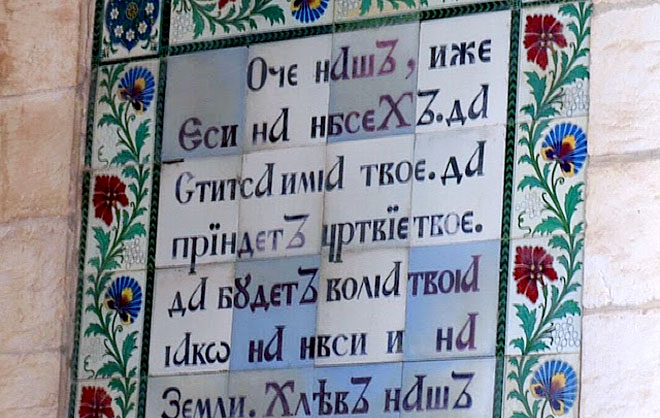 Оче нашъ, иже
Єси на нбсєхъ. да
Ститсѧ имıа твоє. да
прїидєтъ цртвїє твоє.
да бꙋдєтъ волıа твоıа
ıакѡ на нвси и на
Земли. Хлѣвъ нашъ